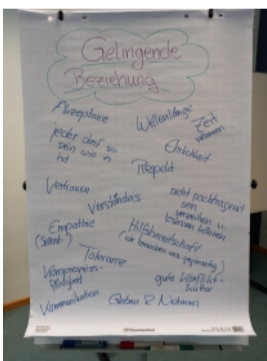 Gelingende
Beziehung
Akzeptanz
Wellenlänge
Zeit
nehmen
jeder darf so
sein wie er
ist
Ehrlichkeit
Respekt
Vertrauen
Verständnis
nicht nachtragend
sein
verzeihen u.
loslassen können
Empathie
(Selbst-)
Hilfsbereitschaft
(wir brauchen uns gegenseitig)
Toleranz
Kompromiss-
fähigkeit
gute Konflikt-
kultur
Kommunikation
Geben & Nehmen